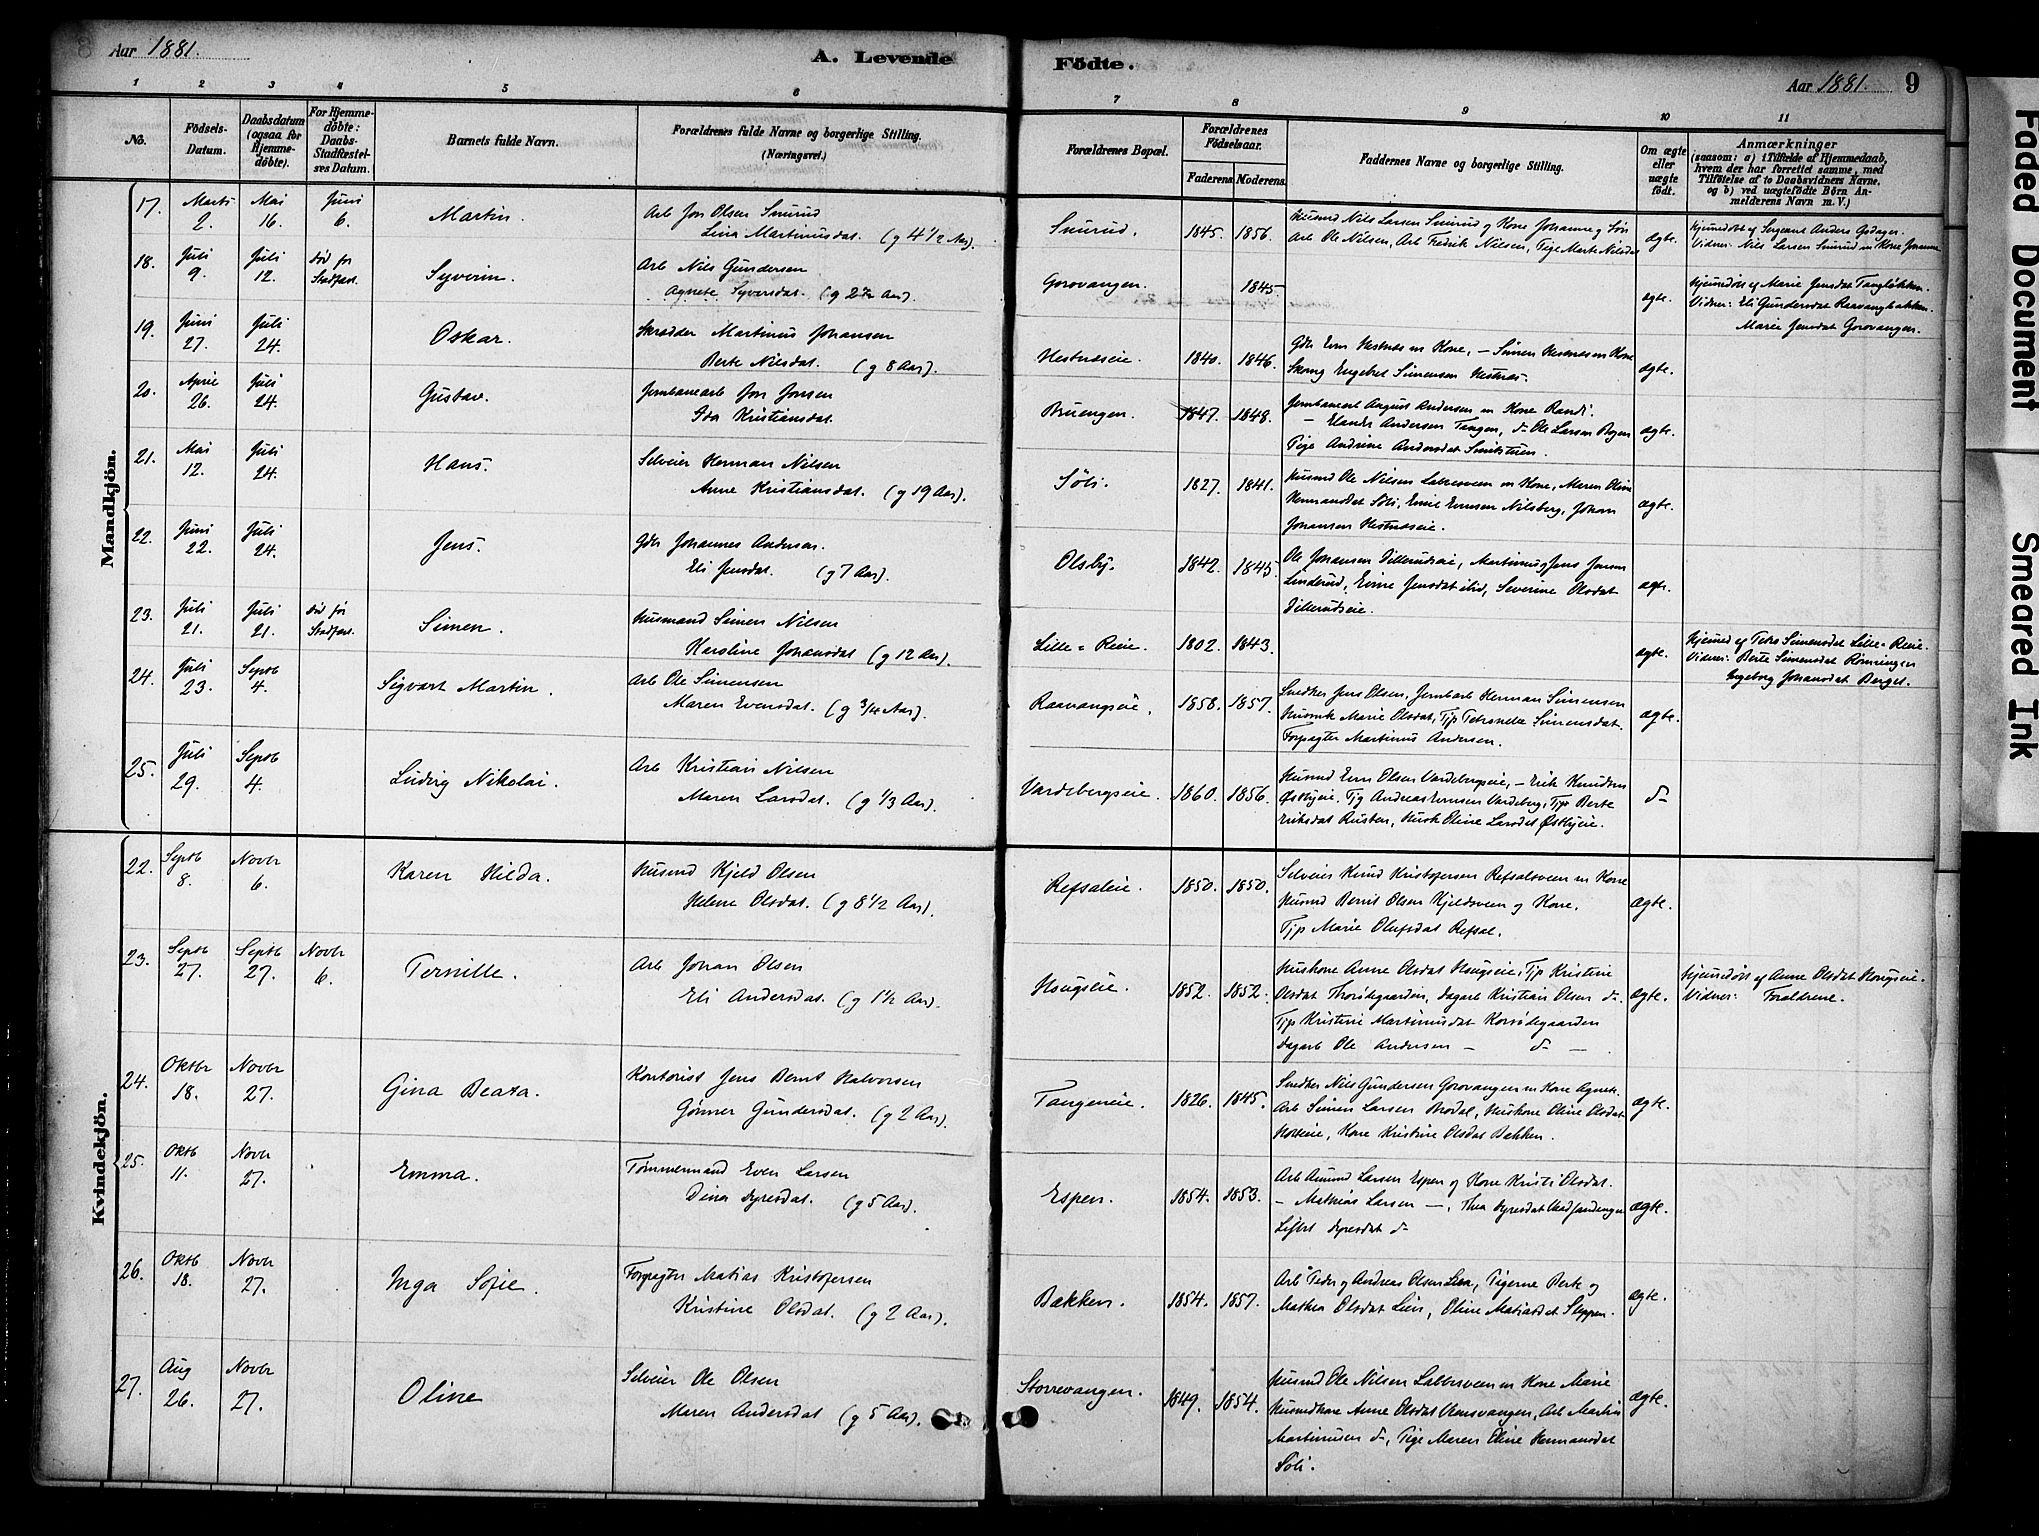 Aar 1881.
A. Levende Födte.
Aar 1881. 9
1 2 3 4 5 6 7 8 9 10 11
No.
Födsels-Datum.
Daabsdatum (ogsaa for Hjemmedöbte).
For Hjemmedöbte: Daabs-Stadfæstelses Datum.
Barnets fulde Navn.
Forældrenes fulde Navne og borgerlige Stilling.
(Næringsvei.)
Forældrenes Bopæl.
Forældrenes Födselsaar.
Faderens. Moderens.
Faddernes Navne og borgerlige Stilling.
Om ægte eller uægte födt.
Anmærkninger
(saasom: a) i Tilfælde af Hjemmedaab, hvem der har forrettet samme, med Tilföielse af to Daabsvidners Navne, og b) ved uægtefödte Börn Anmelderens Navn m. V.)
Mandkjön.
17. Marts 2. Mai 16. Juni 6. Martin. Arb Jon Olsen Snurud
Lina Martinusdat. (g 4 1/2 Aar).
Snurud. 1845. 1856. Husmd Nils Larsen Snurud og Kone Johanne og Søn
Arb Ole Nilsen, Arb Fredrik Nilsen, Pige Marte Nilsdat
ægte. Hjemdøbt af Sergeant Anders Opdager.
Vidner: Nils Larsen Snurud m Kone Johanne
18. Juli 9. Juli 12. død før Stadfæst. Syverin. Arb Nils Gundersen
Agnete Syversdat. (g 2 Aar).
Gorovangen. 1845. ægte. Hjemdøbt af Marie Jensdat Tangløkken.
Vidner: Eli Gundersdat Raavangbakken
Marie Jensdat Gorovangen.
19. Juni 27. Juli 24. Oskar. Skrædder Martinus Johansen
Berte Nilsdat. (g 8 Aar).
Hestnæseie. 1840. 1846. Gdr Even Hestnæs m Kone, – Simen Hestnæs m Kone
Engebret Simensen Hestnæs. ægte.
20. April 26. Juli 24. Gustav. Jernbanearb Jon Jonsen
Ida Kristiansdat.
Bruengen. 1847. 1848. Jernbanearb August Andersen m Kone Randi.
– Elander Andersen Tangen, do Ole Larsen
Pige Andrine Andersdat ægte.
21. Mai 12. Juli 24. Hans. Selveier Herman Nilsen
Anne Kristiansdat. (g 19 Aar).
Søli. 1827. 1841. Husmd Ole Nilsen Labbesveen m Kone, Maren Oline
Hermansdat Søli, Emil Evensen Nilsberg, Johan
Johansen Hestnæseie. ægte.
22. Juni 22. Juli 24. Jens. Gdr Johannes Andersen.
Eli Jensdat. (g 7 Aar).
Olsby. 1842. 1845. Ole Johansen Dillerudseie, Martinus og Jens Jensen
Linderud, Evine Jensdat ibid, Severine Olsdat
Dillerudseie. ægte.
23. Juli 21. Juli 21. død før Stadfæst. Simen. Husmand Simen Nilsen
Karoline Johansdat (g 12 Aar).
Lille-Reeie. 1802. 1843. ægte. Hjemmed af Petra Simensdat Lille-Reeie.
Vidner: Berte Simensdat Rönningen
Ingeborg Johansdat Berget.
24. Juli 23. Septb 4. Sigvart Martin. Arb Ole Simensen
Maren Evensdat. (g 3/4 Aar).
Raavangseie. 1858. 1857. Snedker Jens Olsen, Jernbarb Herman Simensen
Marie Olsdat, Tjp Petronelle Simensdat.
Forpagter Martinus Andersen. ægte.
25. Juli 29. Septb 4. Ludvig Nikolai. Arb Kristian Nilsen
Maren Larsdat. (g 1/3 Aar).
Vardebergseie. 1860. 1856. Husmd Even Olsen Vardebergseie, – Erik Knudsen
Østbyeie. Tjg Andreas Evensen Vardeberg, Tjp Berte
Eriksdat Rusten, Husk Oline Larsdat Østbyeie. do
Kvindekjön.
22. Septb 8. Novbr 6. Karen Hilda. Husmd Kjeld Olsen
Helene Olsdat. (g 8 1/2 Aar).
Refsaleie. 1850. 1850. Selveier Knud Kristofersen Refsalsveen m Kone
Husmd Bernt Olsen Kjeldsveen og Kone.
Tjp Marie Olufsdat Refsal. ægte.
23. Septb 27. Septb 27. Novbr 6. Pernille. Arb Johan Olsen
Eli Andersdat. (g 1 1/2 Aar).
Hougseie. 1852. 1852. Huskone Anne Olsdat Hougseie, Tjp Kristine
Olsdat Thorsödegaarden, Dagarb Kristian Olsen do.
Tjp Kristine Martinusdat Korsödegaarden
Dagarb Ole Andersen – do – ægte. Hjemmedöbt af Anne Olsdat Hougseie.
Vidner: Forældrene.
24. Oktbr 18. Novbr 27. Gina Beata. Kontorist Jens Bernt Halvorsen
Gönner Gundersdat. (g 2 Aar).
Tangeneie. 1826. 1845. Snedker Nils Gundersen Gorovangen m Kone Agnete.
Arb Simen Larsen Brodal, Huskone Oline Olsdat
Kone Kristine Olsdat Bakken. ægte.
25. Oktb 11. Novbr 27. Emma. Tømmermand Even Larsen
Dina Syversdat. (g 5 Aar).
Espen. 1854. 1853. Arb Amund Larsen Espen og Kone Kristi Olsdat.
– Mathias Larsen –, Thea Syversdat
Syversdat do ægte.
26. Oktb 18. Novbr 27. Inga Sofie. Forpagter Matias Kristofersen
Kristine Olsdat. (g 2 Aar).
Bakken. 1854. 1857. Arb Peder og Andreas Olsen Lien, Pigerne Berte og
Mathea Olsdat Lien, Oline Matiasdat Sleppen. ægte.
27. Aug 26. Novbr 27. Oline Selveier Ole Olsen
Maren Andersdat (g 5 Aar).
Storrevangen. 1849. 1854. Husmd Ole Nilsen Labbesveen m Kone Marie
Husmdkone Anne Olsdat Arb Martin
Martinusen do, Pige Maren Oline Hermansdat
Søli. ægte.
Faded Document Smeared Ink